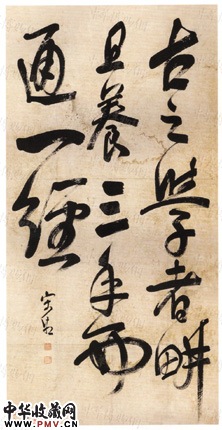 古之學者畊
且養三年而
通一經
宋曹
中华收藏网
WWW.PMV.CN